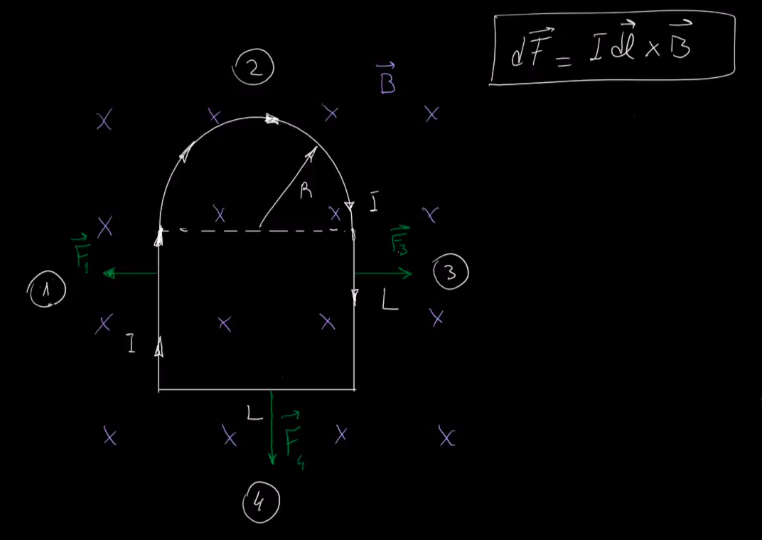 dF⃗ = I dl⃗ × B⃗
2
B⃗
x x x x
R
I
x x x x
F⃗₁
F⃗₃
1
3
L
x x x x
I
L
F⃗₄
x x x x
4